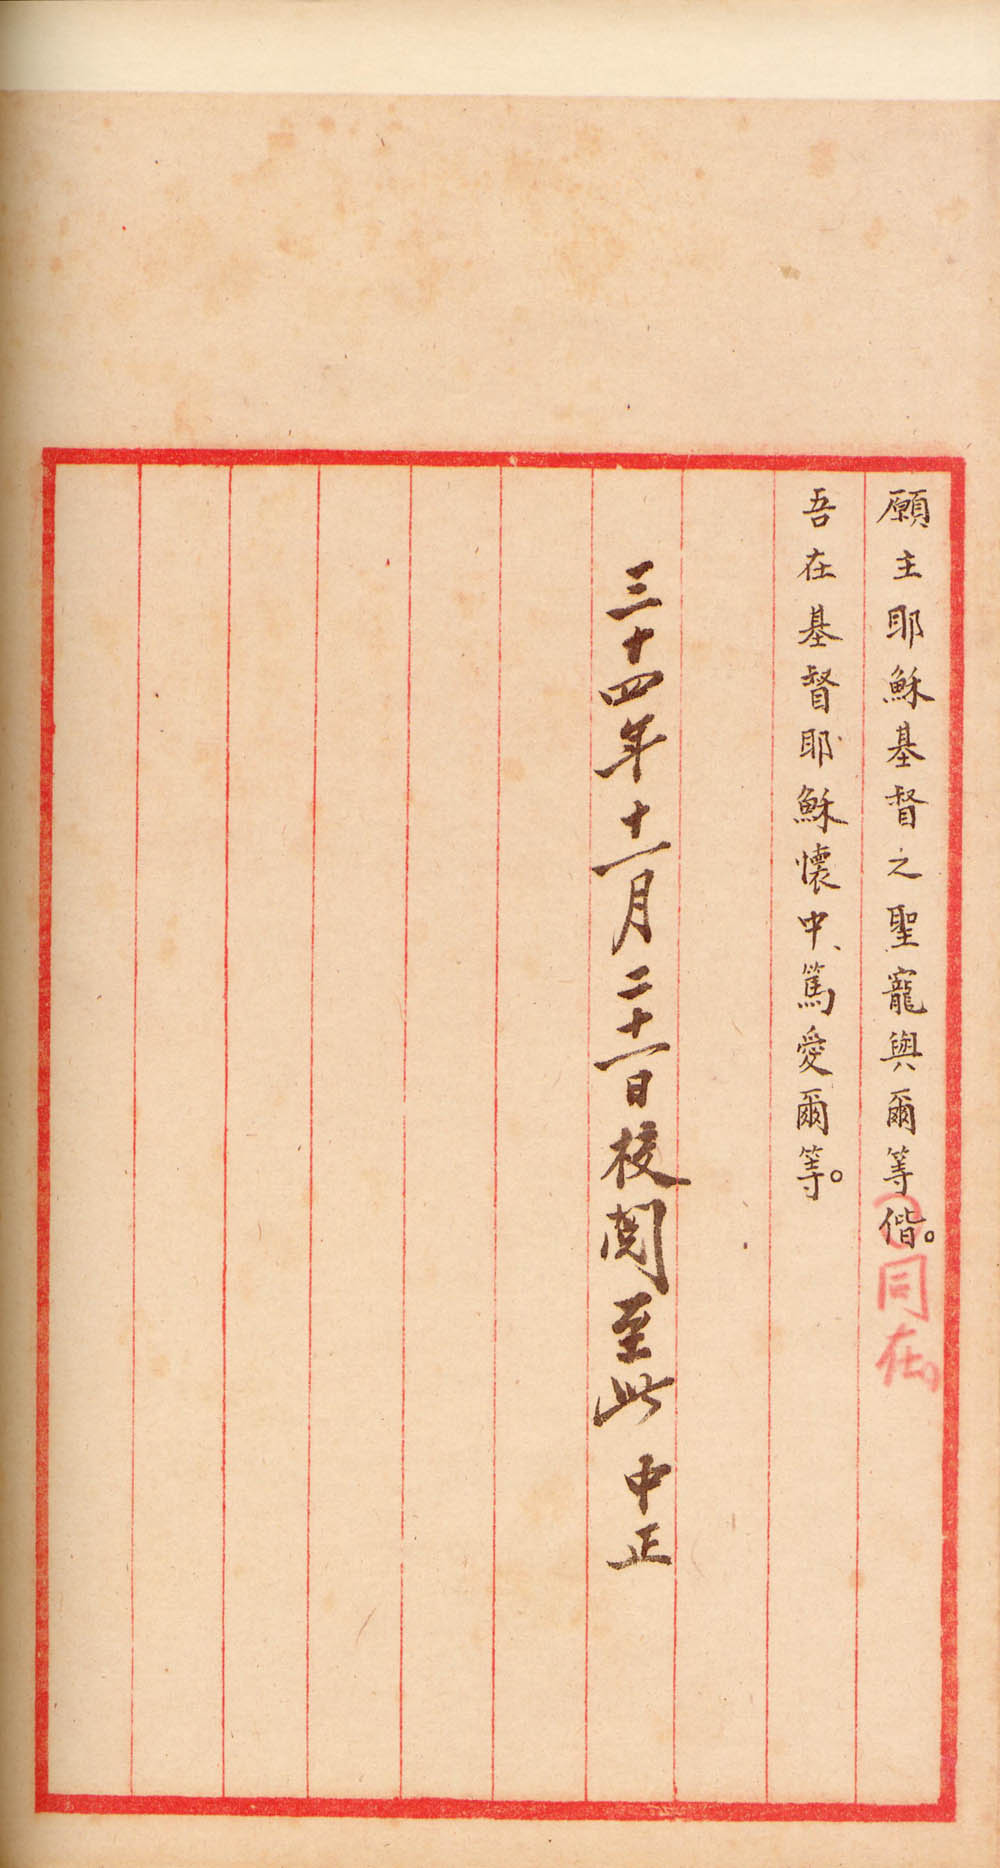 願主耶穌基督之聖寵與爾等偕。同在。
吾在基督耶穌懷中、篤愛爾等。
三十四年十一月二十一日校閱至此 中正